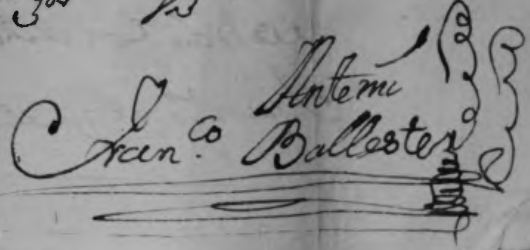 Antemí
Fran.co Ballester